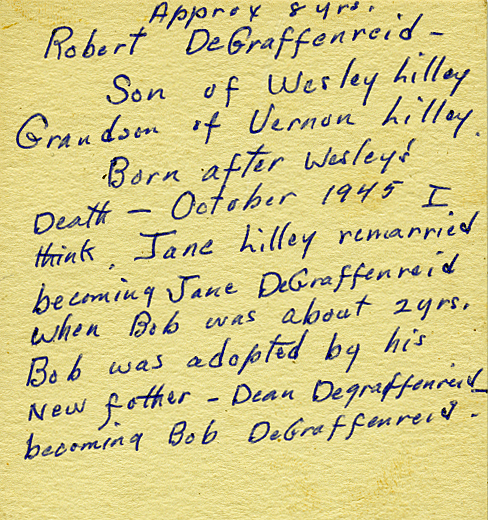 Approx 8 yrs.
Robert DeGraffenreid -
Son of Wesley Lilley
Grandson of Vernon Lilley.
Born after Wesley's
Death - October 1945 I
think. Jane Lilley remarried
becoming Jane DeGraffenreid
when Bob was about 2yrs.
Bob was adopted by his
New father - Dean Degraffenreid
becoming Bob DeGraffenreid.